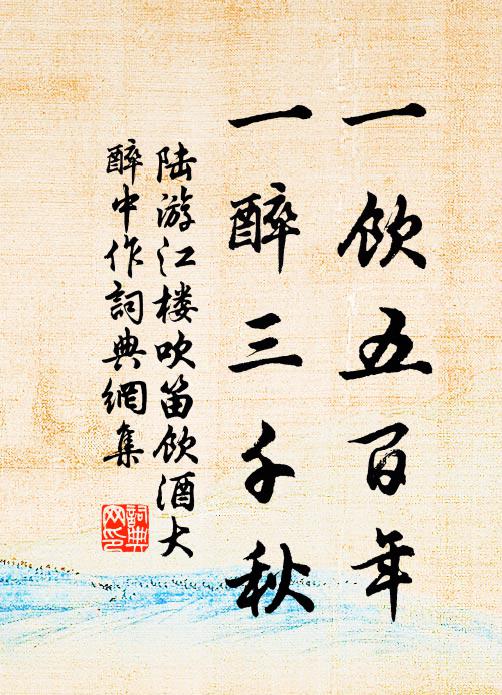 一飲五百年
一醉三千秋
陆游江楼吹笛飲酒大
醉中作詞典網集
詞典網印